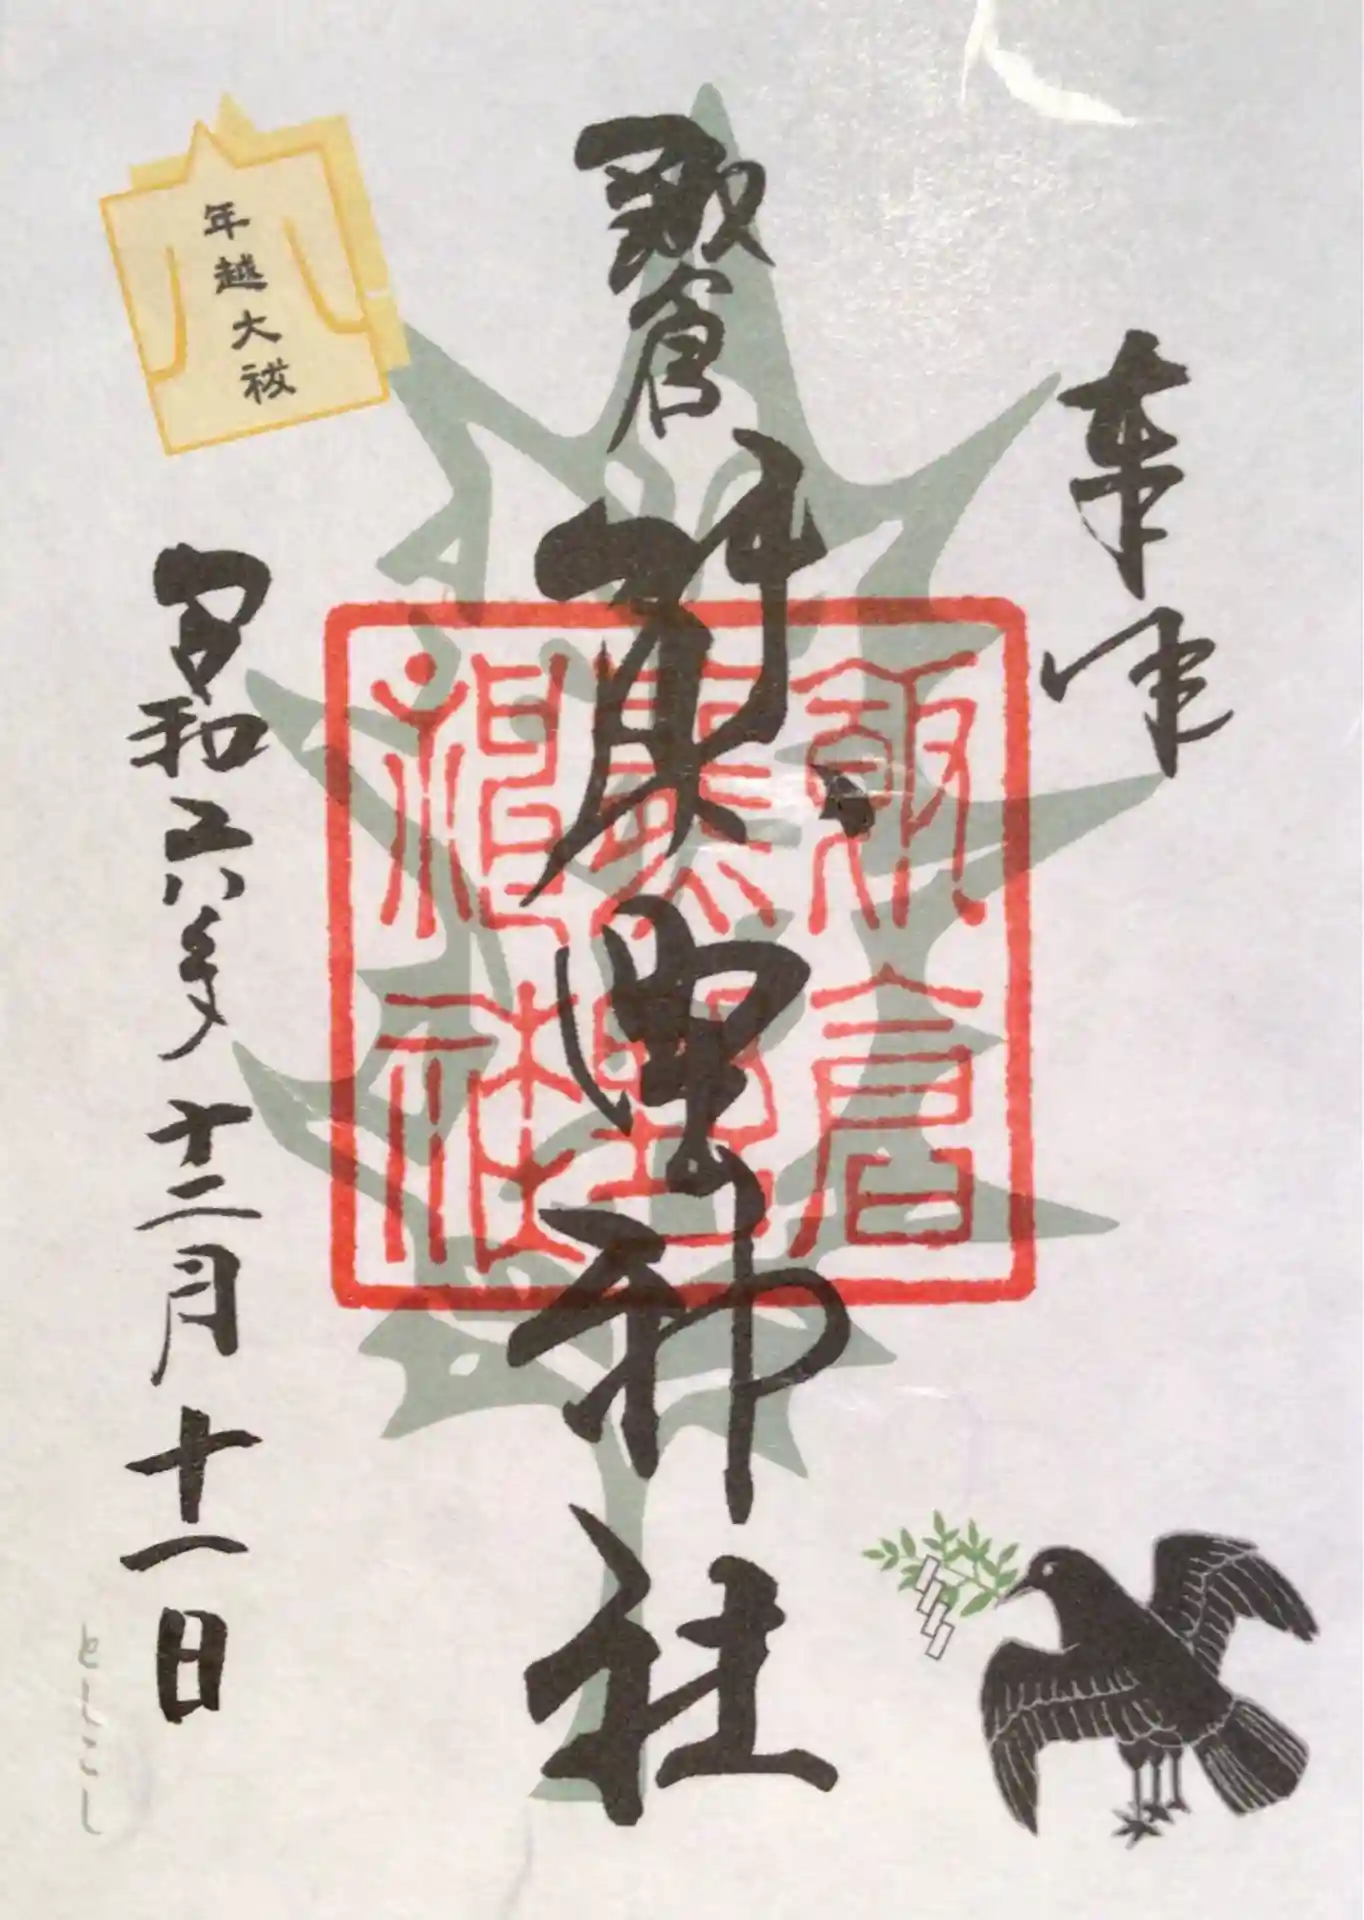 奉拝
飯倉
熊野神社
飯倉
熊野
神社
年越大祓
令和六年十二月十一日
としこし